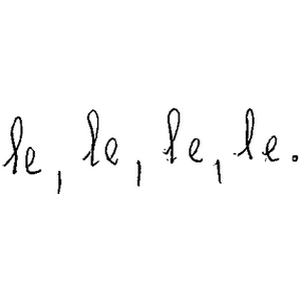 le, le, le, le.